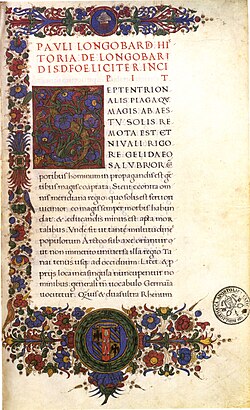 PAVLI LONGOBARD HIS
TORIA DE LONGOBARI
DIS DFOELICITER INCI
PIT
EPTENTRION
ALIS PLAGA QV
MAGIS AB AES
TV SOLIS RE
MOTA EST ET
NIVALI RIGO
RE GELIDA EO
SALVBRIOR
poribus hominum
propagandis est ge
tibus magis coaptata. Sicut econtra om
nis meridiana regio quo solis est feruori
uicinior eo magis semper morbis habun
dat & educandis minus est apta mor
talibus. Unde fit ut tantae multitudines
populorum Arctoo sub axe oriantur
ut non immerito uniuersa illa regio Ta
nai tenus usque ad occiduum Licet & p
priis loca in ea singula nuncupentur no
minibus generali tn uocabulo Germania
uocitetur
Rhenum